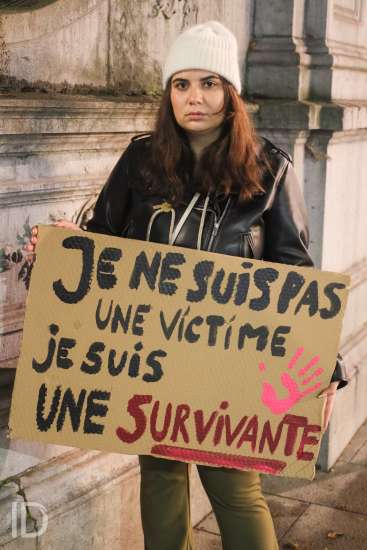 JE NE SUIS PAS
UNE VICTIME
JE SUIS
UNE SURVIVANTE
ID